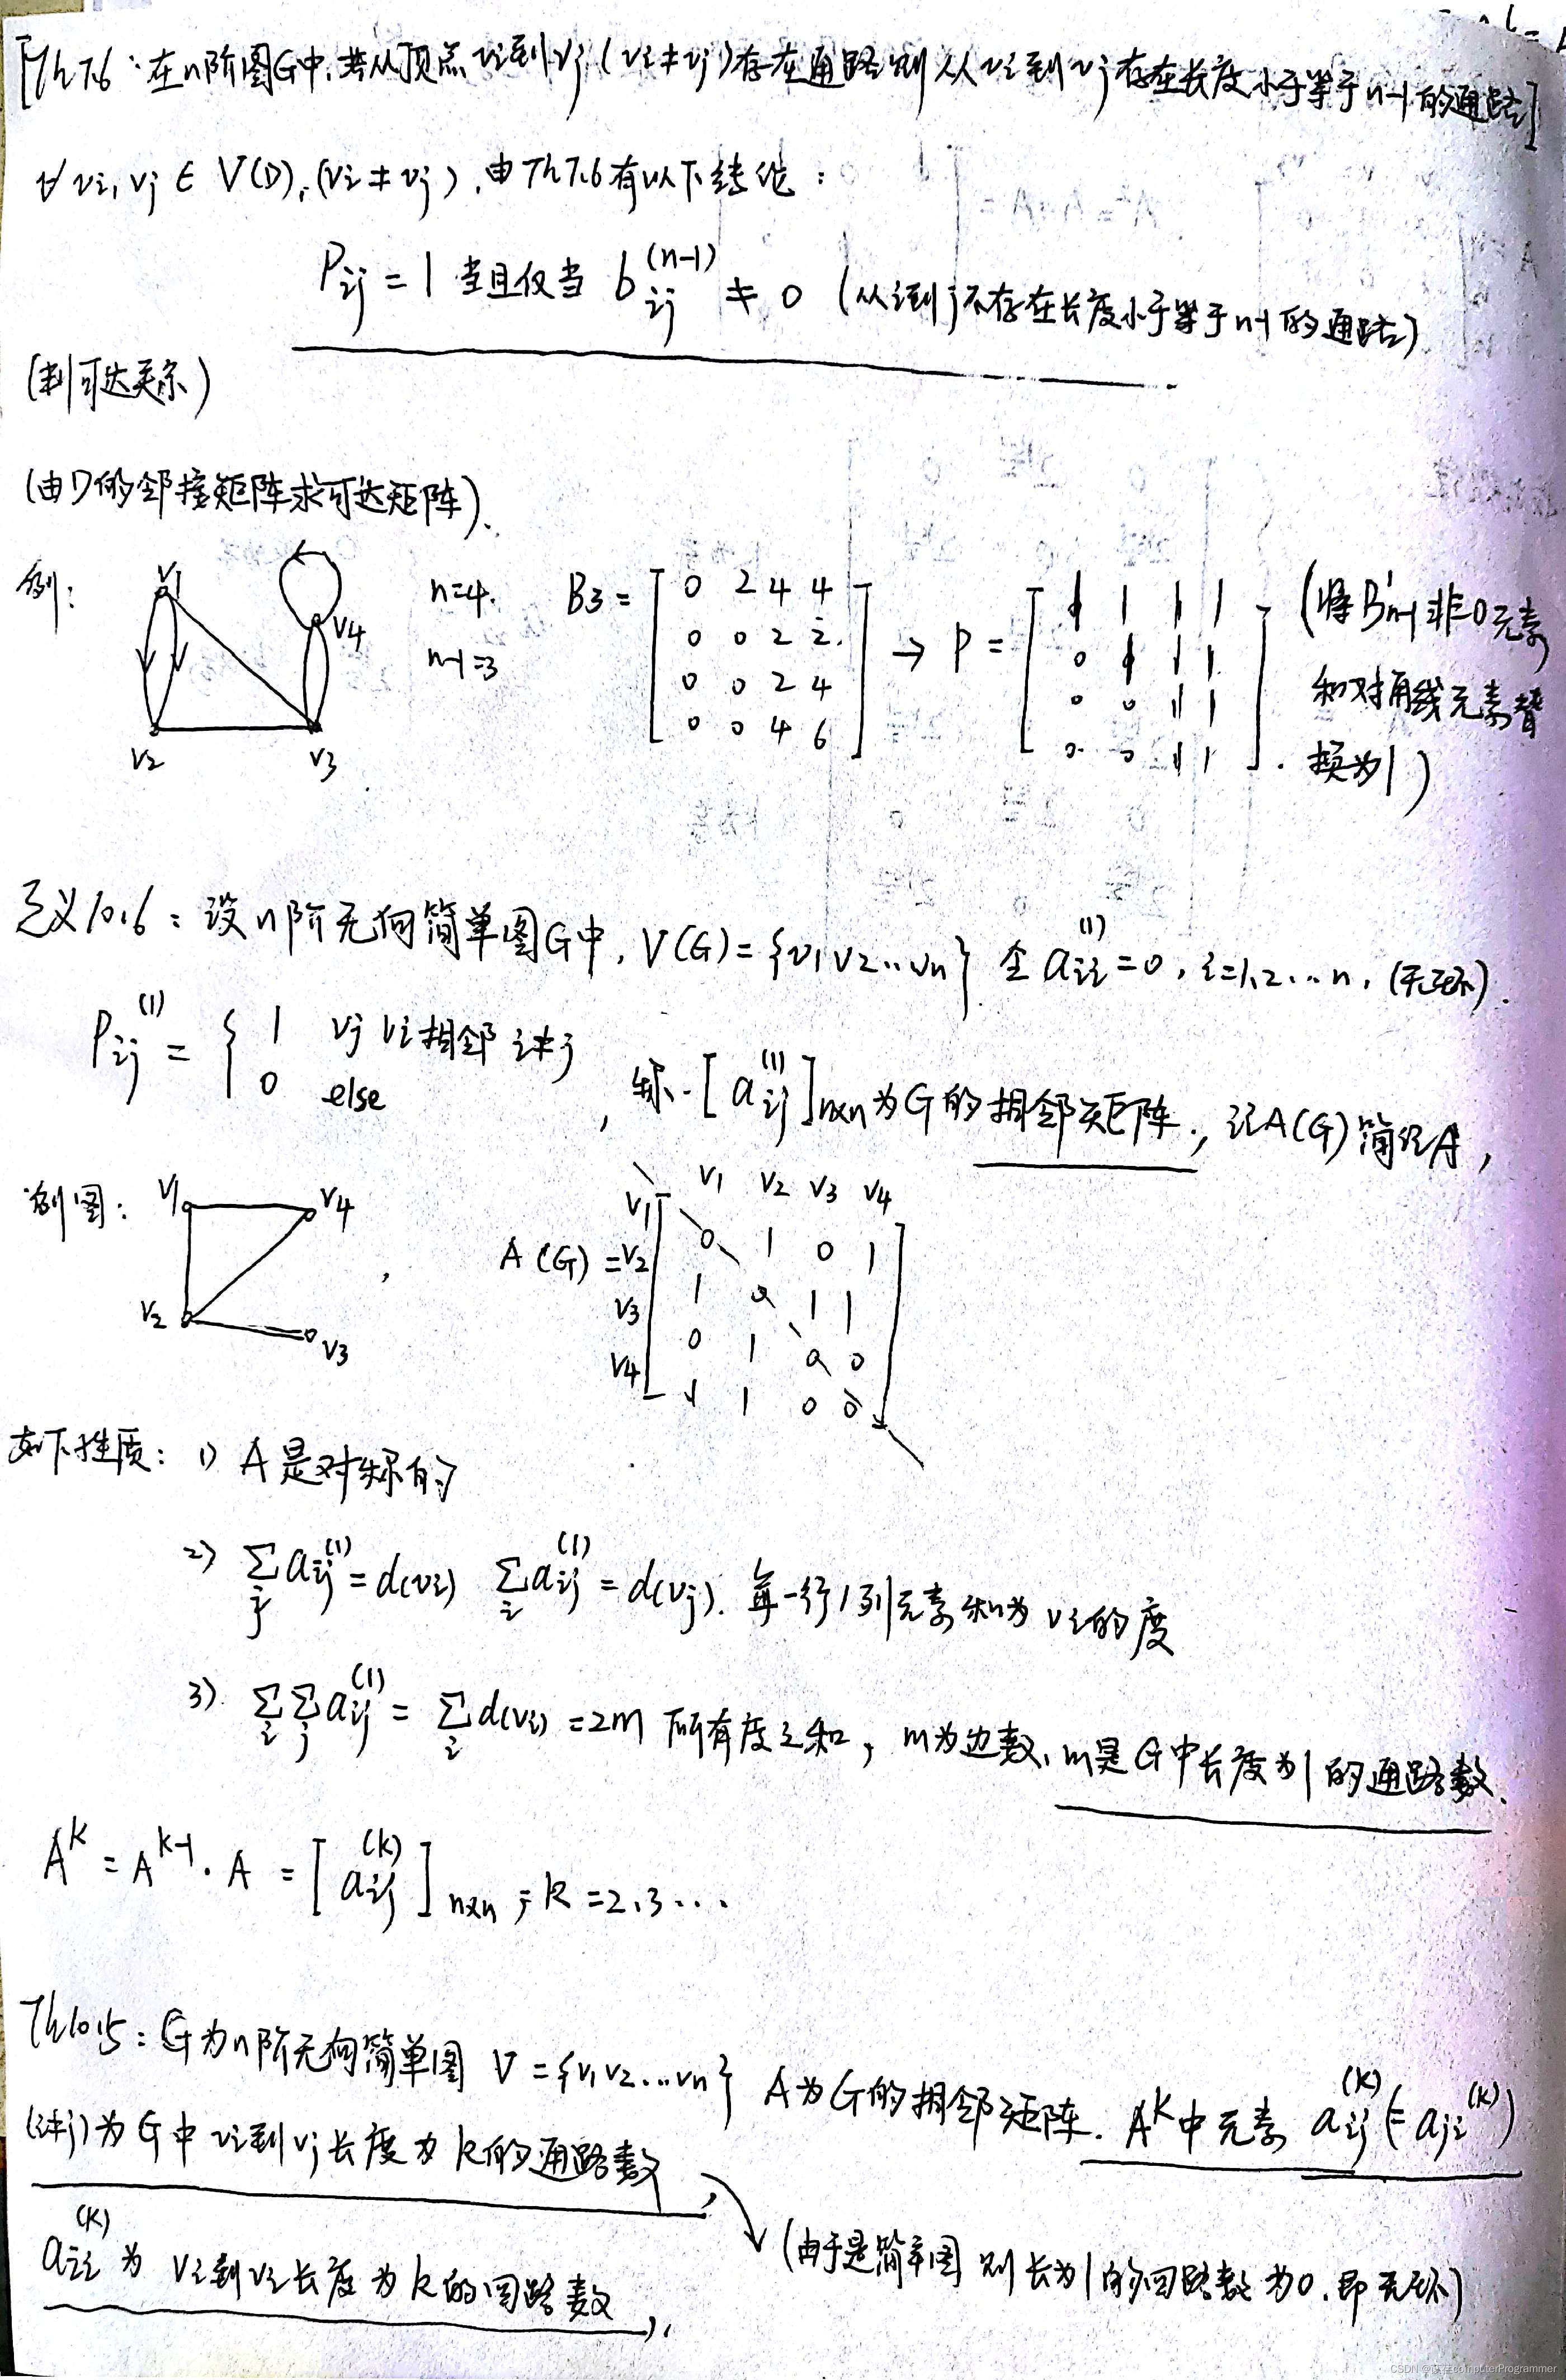 [Th7.6：在n阶图G中，若从顶点vi到vj（vi≠vj）存在通路则从vi到vj存在长度小于等于n-1的通路]
∀vi, vj ∈ V(D), (vi≠vj), 由Th7.6有以下结论：
Pij = 1 当且仅当 bij^(n-1) ≠ 0 (从i到j不存在长度小于等于n-1的通路)
(判可达关系)
(由D的邻接矩阵求可达矩阵).
例：
v1
v4
v2
v3
n=4.
n-1=3
B3 = [
0 2 4 4
0 0 2 2.
0 0 2 4
0 0 4 6
]
→ P = [
1 1 1 1
0 1 1 1
0 0 1 1
0 0 1 1
].
(将Bn-1非0元素
和对角线元素替
换为1)
定义10.6：设n阶无向简单图G中, V(G)={v1 v2...vn} 令 aii^(1)=0, i=1,2...n, (无环).
Pij^(1) = { 1 vj vi相邻 i≠j
0 else
, 称 [aij^(1)]n×n为G的相邻矩阵, 记A(G)简记A,
例图：
v1
v4
v2
v3
,
A(G) =
v1 v2 v3 v4
v1
v2
v3
v4
0 1 0 1
1 0 1 1
0 1 0 0
1 1 0 0
如下性质： 1) A是对称的
2) Σj aij^(1) = d(vi) Σi aij^(1) = d(vj). 每一行/列元素和为vi的度
3). Σi Σj aij^(1) = Σi d(vi) = 2m 所有度之和, m为边数, m是G中长度为1的通路数.
A^k = A^(k-1) · A = [aij^(k)]n×n, k=2,3...
Th10.5：G为n阶无向简单图 V={v1 v2...vn} A为G的相邻矩阵. A^k中元素 aij^(k) (=aji^(k))
(i≠j)为G中vi到vj长度为k的通路数,
aii^(k) 为 vi到vi长度为k的回路数,
(由于是简单图 则长为1的回路数为0, 即无环)